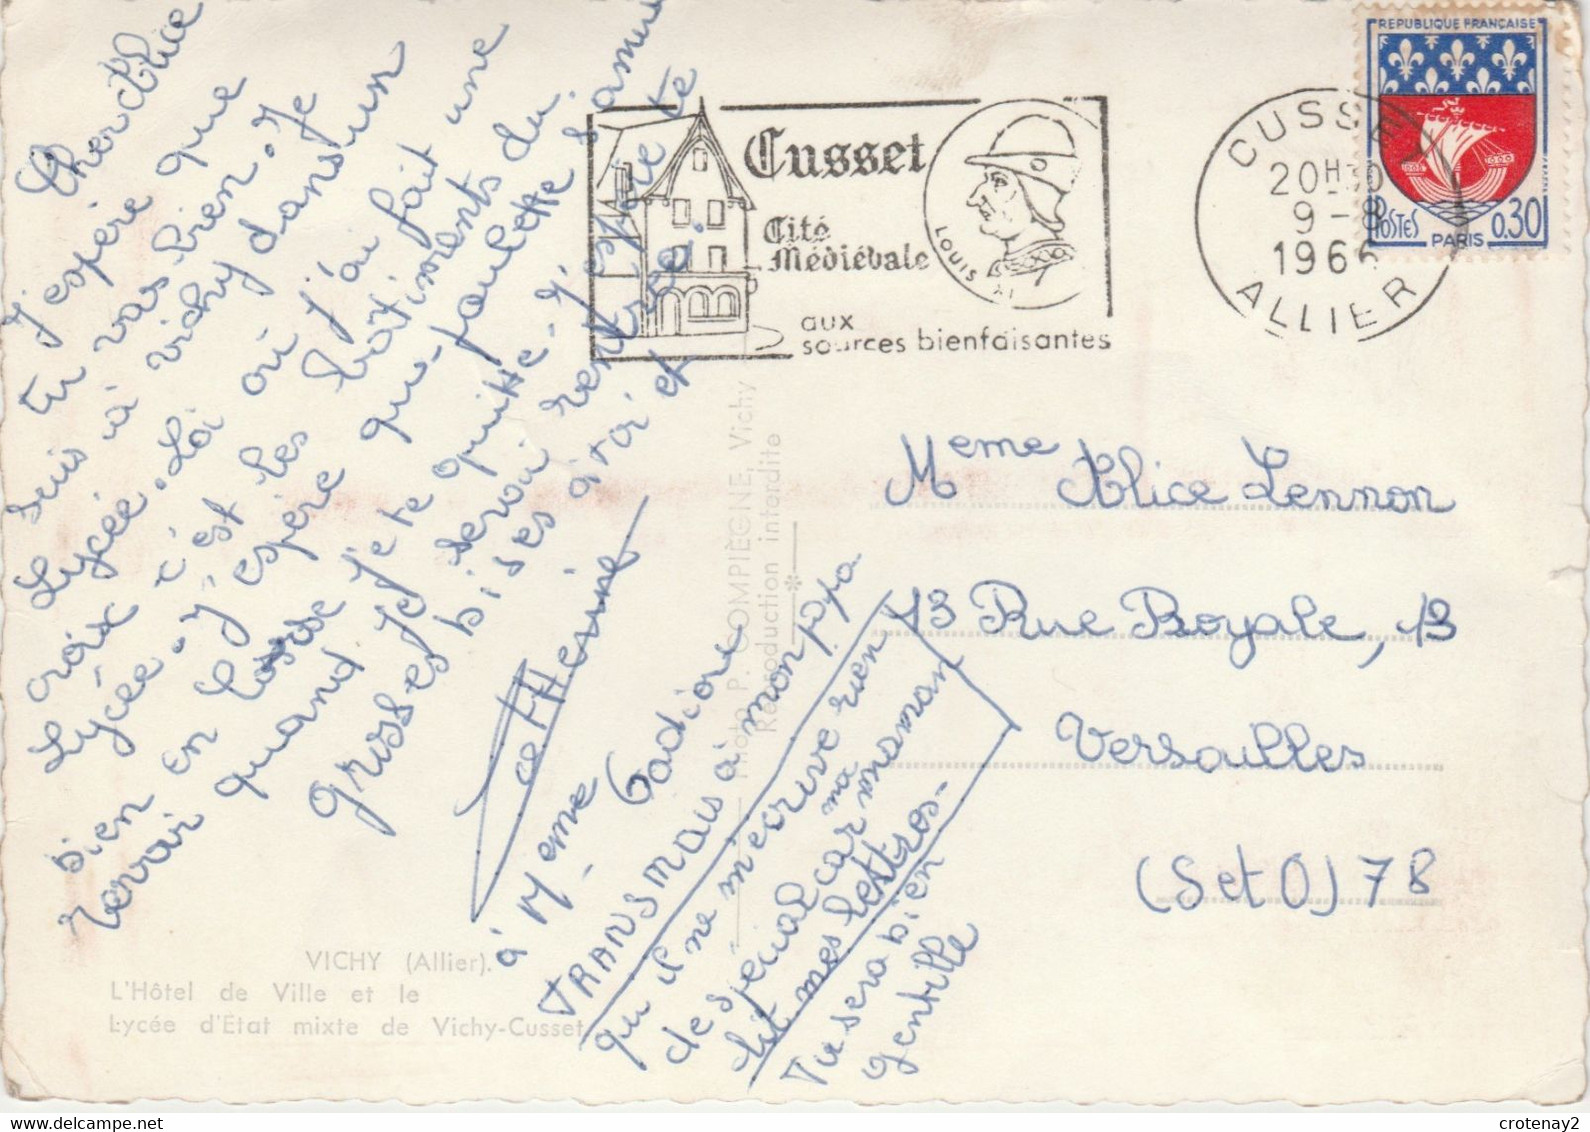 Cher Alice
J'espère que
tu vas bien. Je
suis à vichy dans un
Lycée. Là où j'ai fait une
croix c'est les batiments du
Lycée. J'espère que poulette s'amuse
bien en Corse. Je te quitte. J'espère te
revoir quand je serai rentrée.
grosses bises à toi et
Catherine
à Meme
TRANSMAIS à mon papa
qu'il ne m'écrive rien
de spécial car ma maman
lit mes lettres.
Tu sera bien
gentille
VICHY (Allier).
L'Hôtel de Ville et le
Lycée d'Etat mixte de Vichy-Cusset
Photo P. COMPIÈGNE, Vichy
Reproduction interdite
Cusset
Cité
Médiévale
LOUIS XI
aux
sources bienfaisantes
CUSSET
20H30
9-8
1966
ALLIER
REPUBLIQUE FRANÇAISE
POSTES
PARIS
0.30
Meme Alice Lennon
13 Rue Royale, 13
Versailles
(S et O) 78
crotenay2